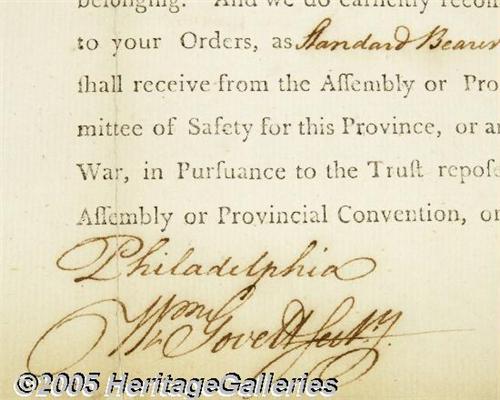 belonging. And we do earneſtly recom
to your Orders, as Standard Bearer
ſhall receive from the Aſſembly or Pro
mittee of Safety for this Province, or an
War, in Purſuance to the Truſt repoſe
Aſſembly or Provincial Convention, or
Philadelphia
Wm Govett Secry.
©2005 HeritageGalleries